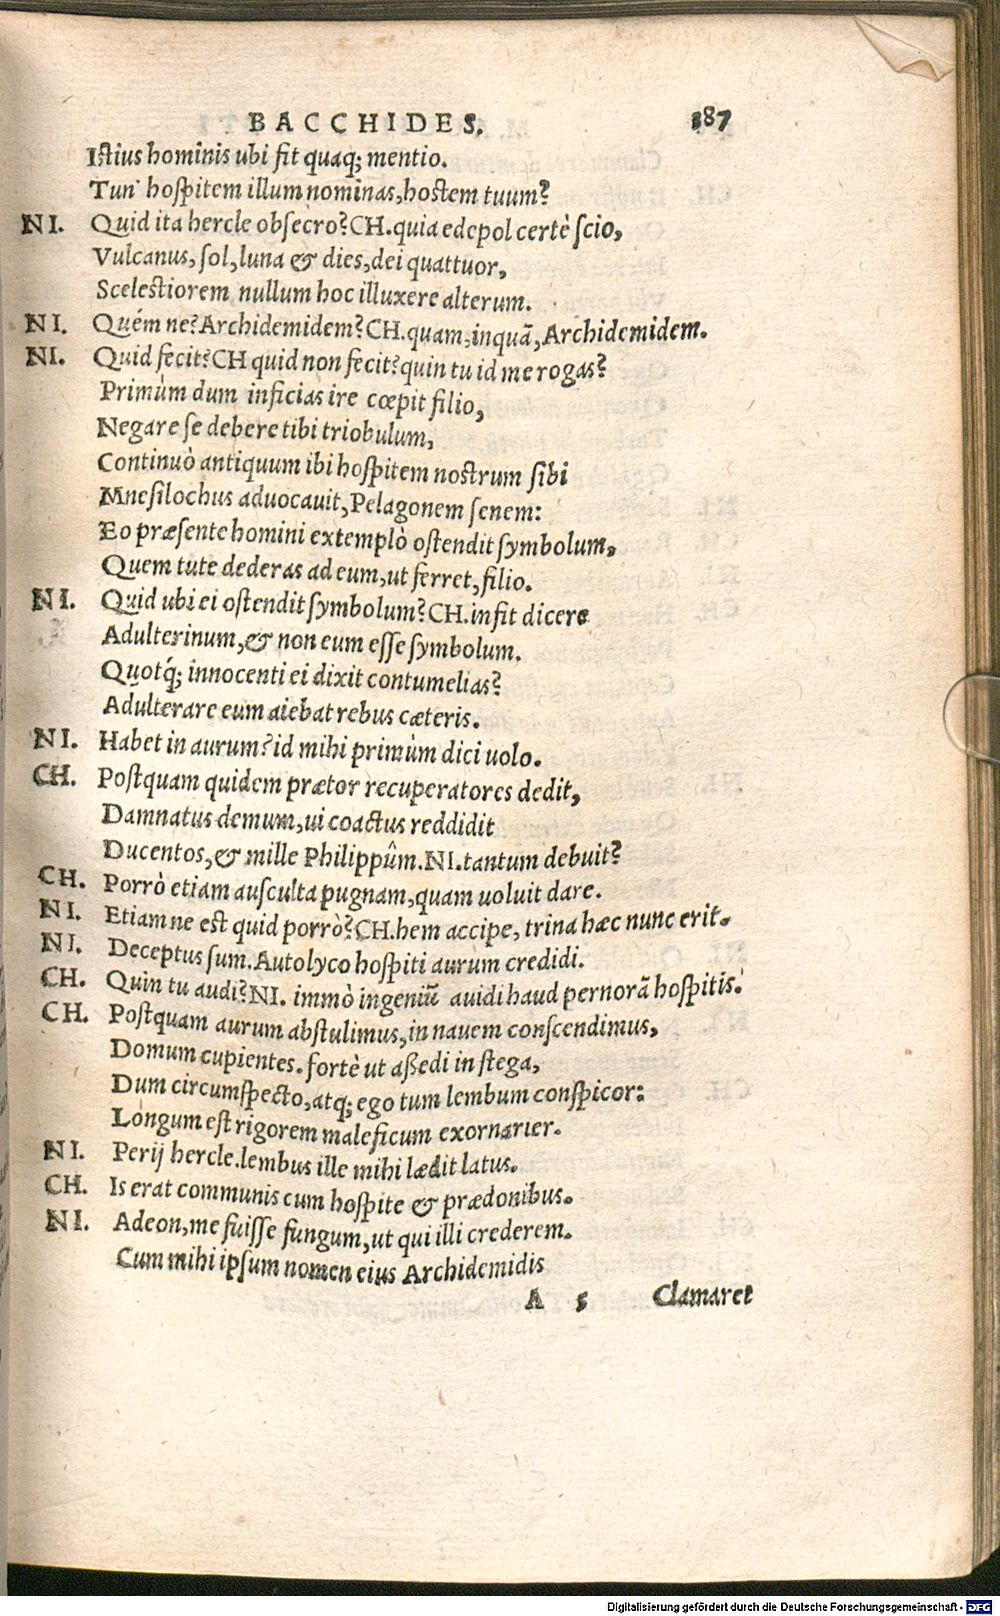 BACCHIDES. 387
Istius hominis ubi fit quaq; mentio.
Tun' hospitem illum nominas, hostem tuum?
NI. Quid ita hercle obsecro? CH. quia edepol certè scio,
Vulcanus, sol, luna & dies, dei quattuor,
Scelestiorem nullum hoc illuxere alterum.
NI. Quém ne? Archidemidem? CH. quam, inquã, Archidemidem.
NI. Quid fecit? CH quid non fecit? quin tu id me rogas?
Primùm dum inficias ire cœpit filio,
Negare se debere tibi triobulum,
Continuò antiquum ibi hospitem nostrum sibi
Mnesilochus aduocauit, Pelagonem senem:
Eo præsente homini extemplò ostendit symbolum,
Quem tute dederas ad eum, ut ferret, filio.
NI. Quid ubi ei ostendit symbolum? CH. infit dicere
Adulterinum, & non eum esse symbolum.
Quotq́; innocenti ei dixit contumelias?
Adulterare eum aiebat rebus cæteris.
NI. Habet in aurum? id mihi primùm dici uolo.
CH. Postquam quidem prætor recuperatores dedit,
Damnatus demum, ui coactus reddidit
Ducentos, & mille Philippûm. NI. tantum debuit?
CH. Porrò etiam ausculta pugnam, quam uoluit dare.
NI. Etiam ne est quid porrò? CH. hem accipe, trina hæc nunc erit.
NI. Deceptus sum. Autolyco hospiti aurum credidi.
CH. Quin tu audi? NI. immò ingeniũ auidi haud pernorã hospitis.
CH. Postquam aurum abstulimus, in nauem conscendimus,
Domum cupientes. fortè ut aßedi in stega,
Dum circumspecto, atq; ego tum lembum conspicor:
Longum est rigorem maleficum exornarier.
NI. Perij hercle. lembus ille mihi lædit latus.
CH. Is erat communis cum hospite & prædonibus.
NI. Adeon, me fuisse fungum, ut qui illi crederem.
Cum mihi ipsum nomen eius Archidemidis
A 5 Clamaret
Digitalisierung gefördert durch die Deutsche Forschungsgemeinschaft - DFG